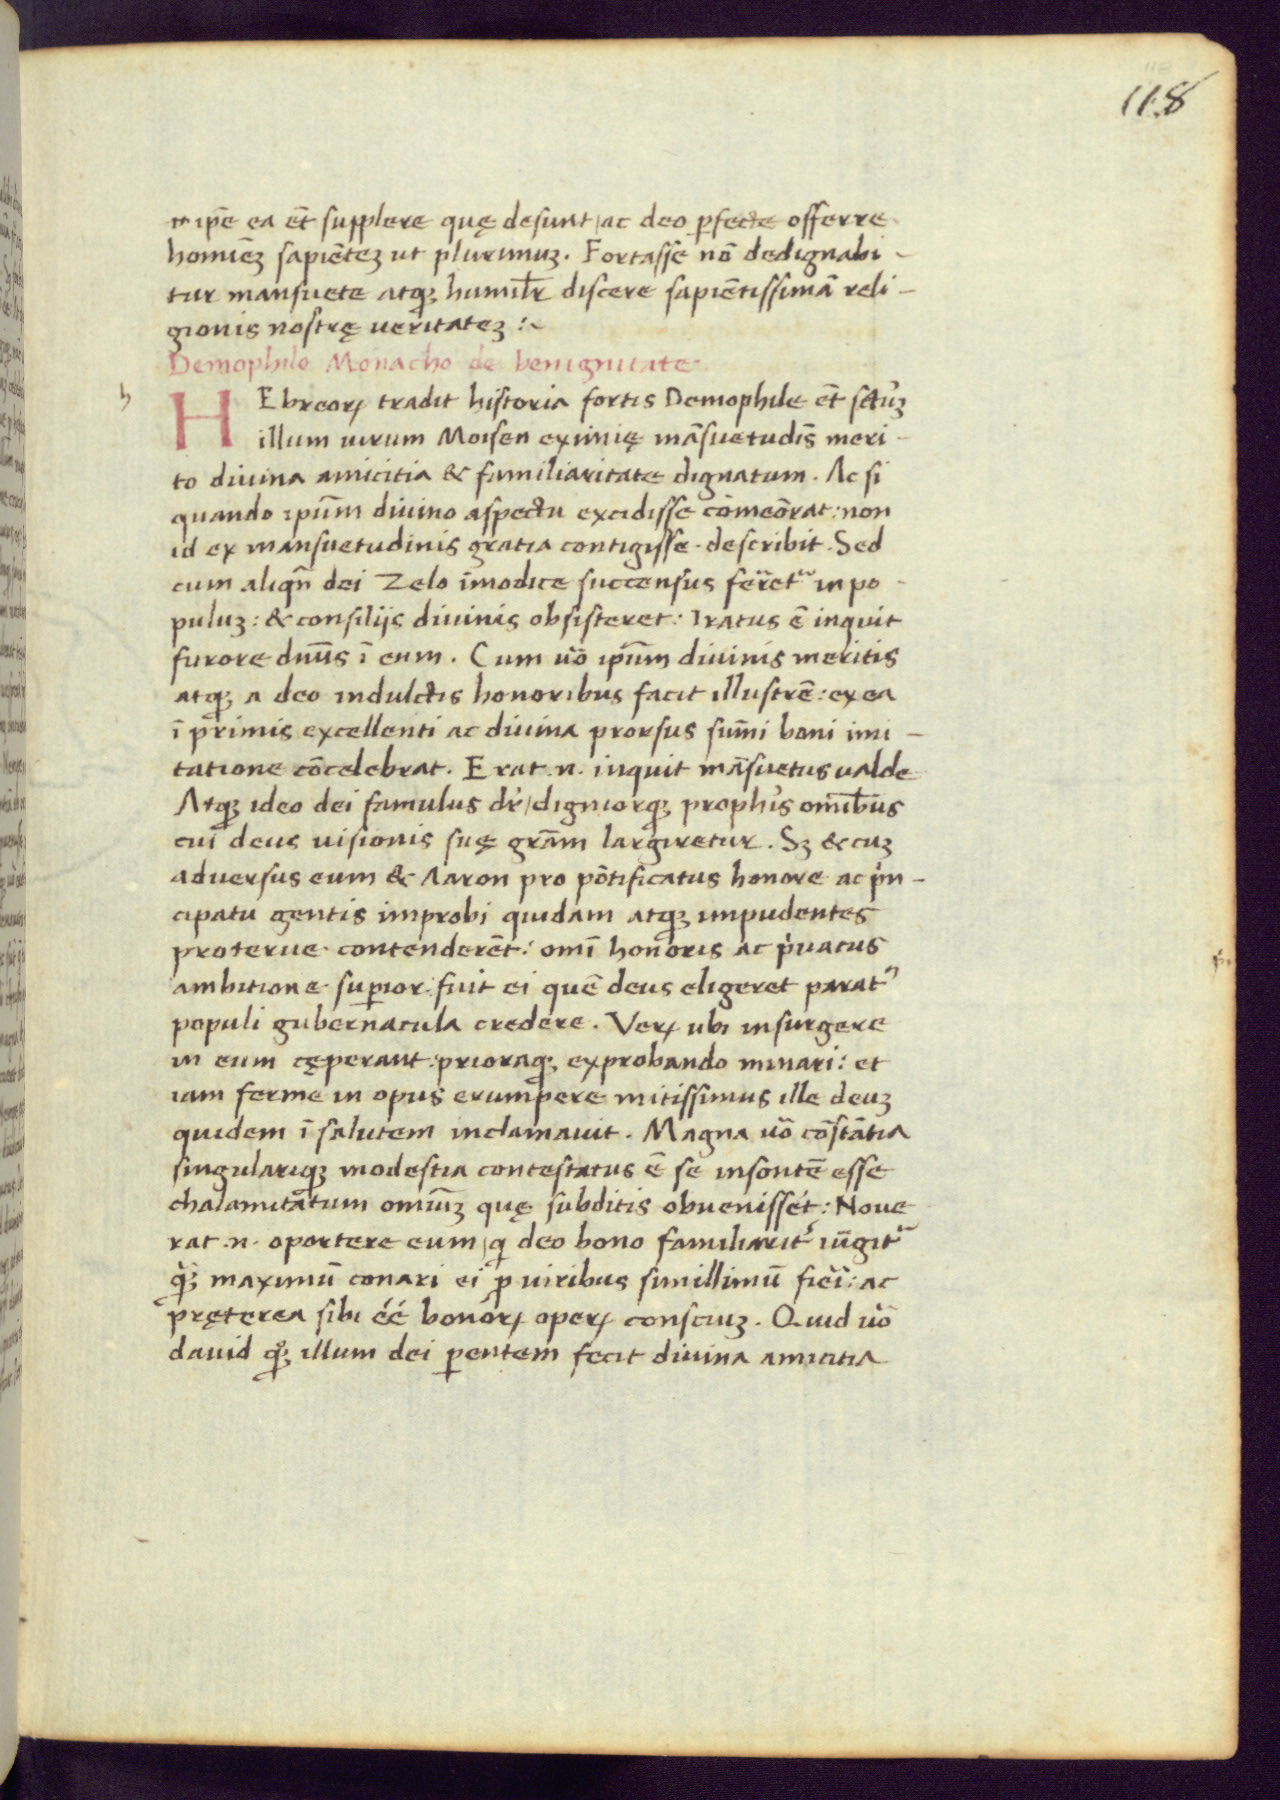 118
ipẽ ea ẽt supplere quę desunt, ac deo ꝑfecte offerre
homiẽꝫ sapiẽteꝫ ut plurimuꝫ. Fortasse nõ dedignabi-
tur mansuete atqꝫ humilr̃ discere sapiẽtissimã reli-
gionis nostrę ueritateꝫ :~
Demophilo Monacho de benignitate.
h
HEbreoꝝ tradit historia fortis Demophile ẽt sctũꝫ
illum uirum Moisen eximię mãsuetudis̃ meri-
to diuina amicitia & familiaritate dignatum. Ac si
quando ipũm diuino aspectu excidisse cõmeõrat: non
id ex mansuetudinis gratia contigisse describit. Sed
cum aliqñ dei Zelo ĩmodice succensus ferr̃et᷑ in po-
puluꝫ: & consilijs diuinis obsisteret: Iratus ẽ inquit
furore dnũs ĩ eum. Cum uõ ipũm diuinis meritis
atqꝫ a deo indulctis honoribus facit illustrẽ: ex ea
ĩ primis excellenti ac diuina prorsus sum̃i boni imi-
tatione cõcelebrat. Erat .n. inquit mãsuetus ualde
Atqꝫ ideo dei famulus dr̃, digniorqꝫ prophis̃ omĩbus
cui deus uisionis suę grãm largiretur. Sꝫ & cuꝫ
aduersus eum & Aaron pro põtificatus honore ac pͥn-
cipatu gentis improbi quidam atqꝫ impudentes
proterue contenderẽt: omĩ honoris ac pͥuatus
ambitione suꝑior fuit ei quẽ deus eligeret parat᷒
populi gubernacula credere. Veꝝ ubi insurgere
in eum cęperant: prioraqꝫ exprobando minari: et
iam ferme in opus erumpere mitissimus ille deuꝫ
quidem ĩ salutem inclamauit. Magna uõ cõstãtia
singulariqꝫ modestia contestatus ẽ se insontẽ esse
chalamitatum omiũꝫ quę subditis obuenisset: Noue
rat .n. oportere eum, qͥ deo bono familiarit᷑ iũgit᷑
qͣꝫ maximũ conari ei ꝓ uiribus simillimũ fieri: ac
pręterea sibi éé bonoꝝ opeꝝ consciuꝫ. Quid uõ
dauid ꝙꝫ illum dei ꝑentem fecit diuina amicitia